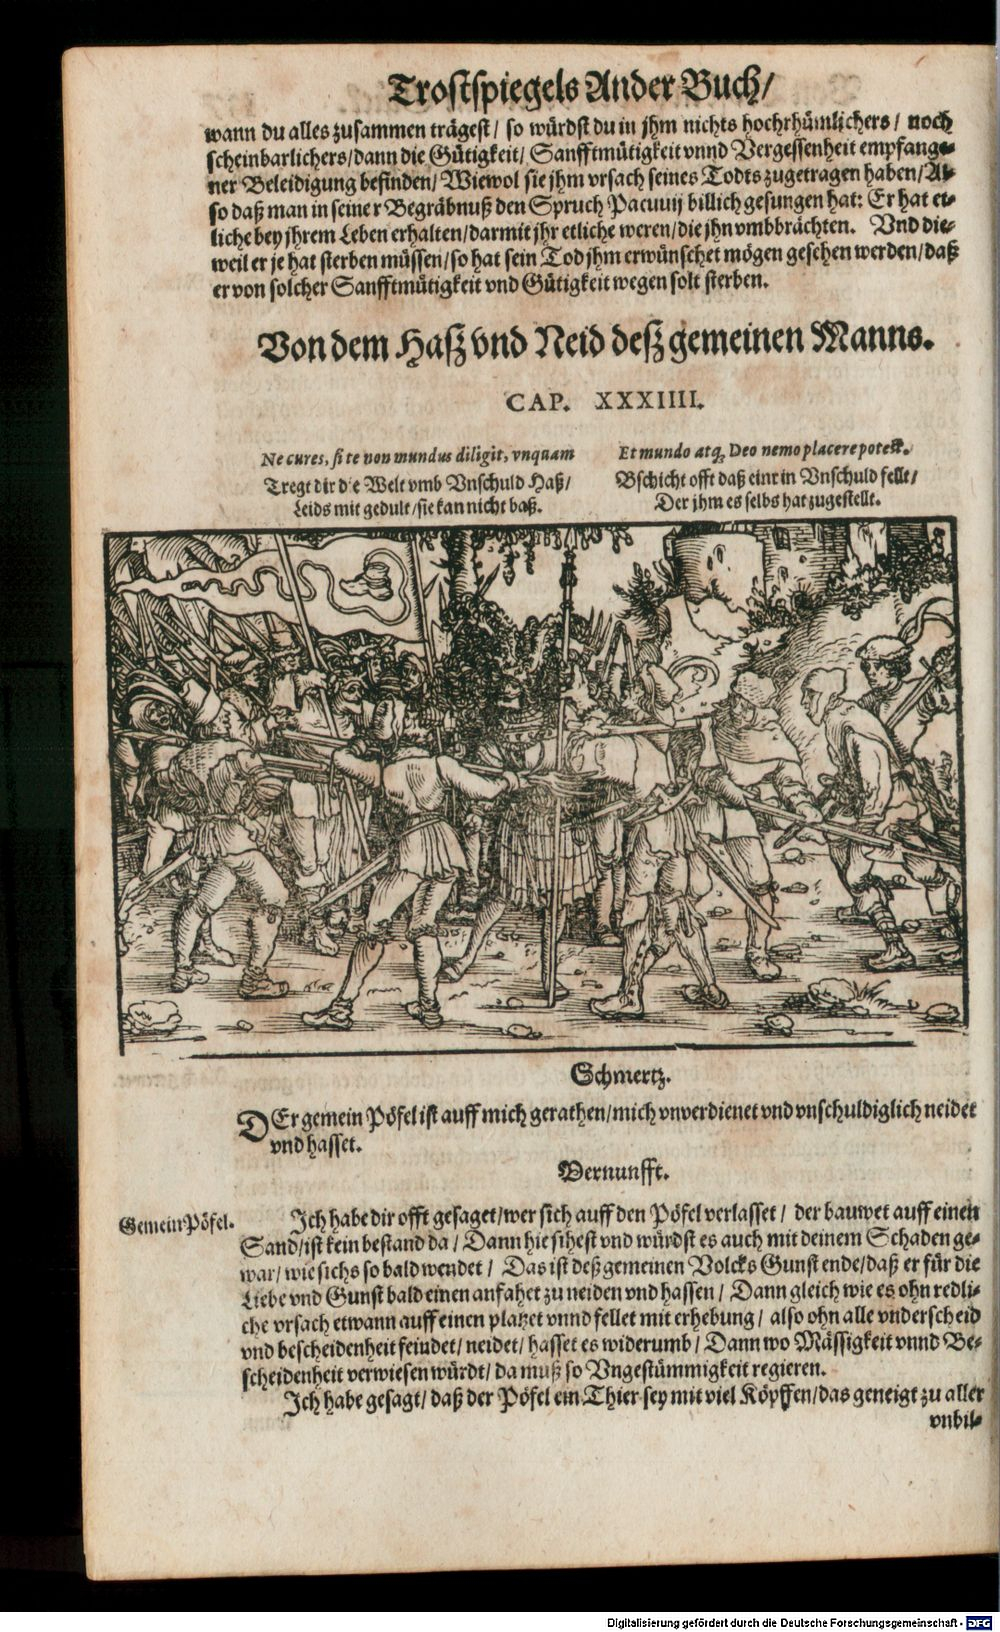 Trostspiegels Ander Buch/
wann du alles zusammen trägest/ so würdst du in jhm nichts hochrhümlichers/ noch
scheinbarlichers/dann die Gütigkeit/ Sanfftmütigkeit vnnd Vergessenheit empfange-
ner Beleidigung befinden/ Wiewol sie jhm vrsach seines Todts zugetragen haben/ Al-
so daß man in seiner Begräbnuß den Spruch Pacuuij billich gesungen hat: Er hat et-
liche bey jhrem Leben erhalten/darmit jhr etliche weren/die jhn vmbbrächten. Vnd die-
weil er je hat sterben müssen/so hat sein Tod jhm erwünschet mögen gesehen werden/daß
er von solcher Sanfftmütigkeit vnd Gütigkeit wegen solt sterben.
Von dem Haß vnd Neid deß gemeinen Manns.
CAP. XXXIIII.
Ne cures, si te non mundus diligit, vnquam
Tregt dir die Welt vmb Vnschuld Haß/
Leids mit gedult/sie kan nicht baß.
Et mundo atq; Deo nemo placere potest.
Bschicht offt daß einr in Vnschuld fellt/
Der jhm es selbs hat zugestellt.
Schmertz.
DEr gemein Pöfel ist auff mich gerathen/mich vnverdienet vnd vnschuldiglich neidet
vnd hasset.
Vernunfft.
Gemein Pöfel.
Ich habe dir offt gesaget/wer sich auff den Pöfel verlasset/ der bauwet auff einen
Sand/ist kein bestand da/ Dann hie sihest vnd würdst es auch mit deinem Schaden ge-
war/wie sichs so bald wendet/ Das ist deß gemeinen Volcks Gunst ende/daß er für die
Liebe vnd Gunst bald einen anfahet zu neiden vnd hassen/ Dann gleich wie es ohn redli-
che vrsach etwann auff einen platzet vnnd fellet mit erhebung/ also ohn alle vnderscheid
vnd bescheidenheit feindet/neidet/ hasset es widerumb/ Dann wo Mässigkeit vnnd Be-
scheidenheit verwiesen würdt/da muß so Vngestümmigkeit regieren.
Ich habe gesagt/ daß der Pöfel ein Thier sey mit viel Köpffen/das geneigt zu aller
vnbil-
Digitalisierung gefördert durch die Deutsche Forschungsgemeinschaft - DFG